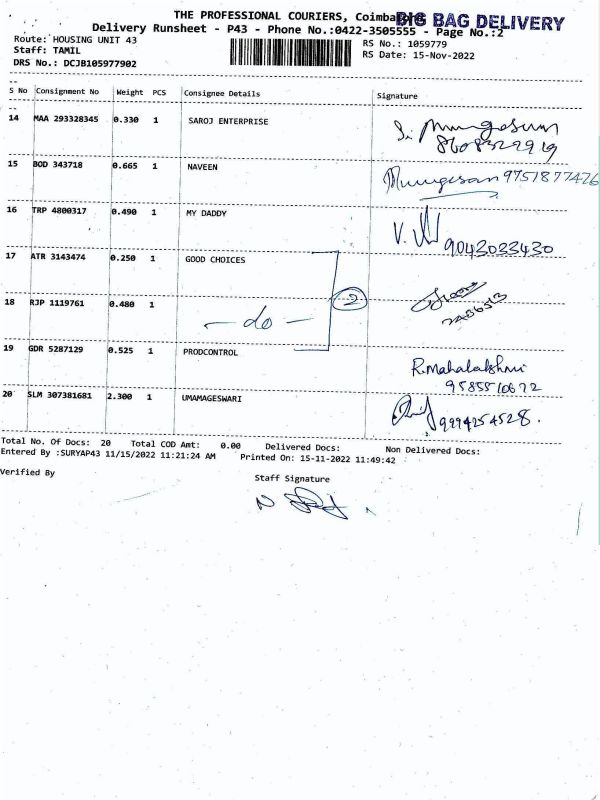 THE PROFESSIONAL COURIERS, Coimbatore
BIG BAG DELIVERY
Delivery Runsheet - P43 - Phone No.:0422-3505555 - Page No.:2
Route: HOUSING UNIT 43
RS No.: 1059779
Staff: TAMIL
RS Date: 15-Nov-2022
DRS No.: DCJB105977902
S No Consignment No Weight PCS Consignee Details Signature
14 MAA 293328345 0.330 1 SAROJ ENTERPRISE
15 BOD 343718 0.665 1 NAVEEN Murugesan 9751877426
16 TRP 4800317 0.490 1 MY DADDY
9043033430
17 ATR 3143474 0.250 1 GOOD CHOICES
2
18 RJP 1119761 0.480 1 — do —
19 GDR 5287129 0.525 1 PRODCONTROL R.Mahalakshmi
9585510672
20 SLM 307381681 2.300 1 UMAMAGESWARI
9994254528.
Total No. Of Docs: 20 Total COD Amt: 0.00 Delivered Docs: Non Delivered Docs:
Entered By :SURYAP43 11/15/2022 11:21:24 AM Printed On: 15-11-2022 11:49:42
Verified By
Staff Signature